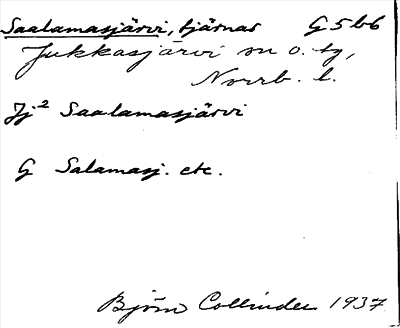 Saalamasjärvi, tjärnar G5b6
Jukkasjärvi sn o. tg,
Norrb. l.
Jj² Saalamasjärvi
G Salamasj. etc.
Björn Collinder 1937